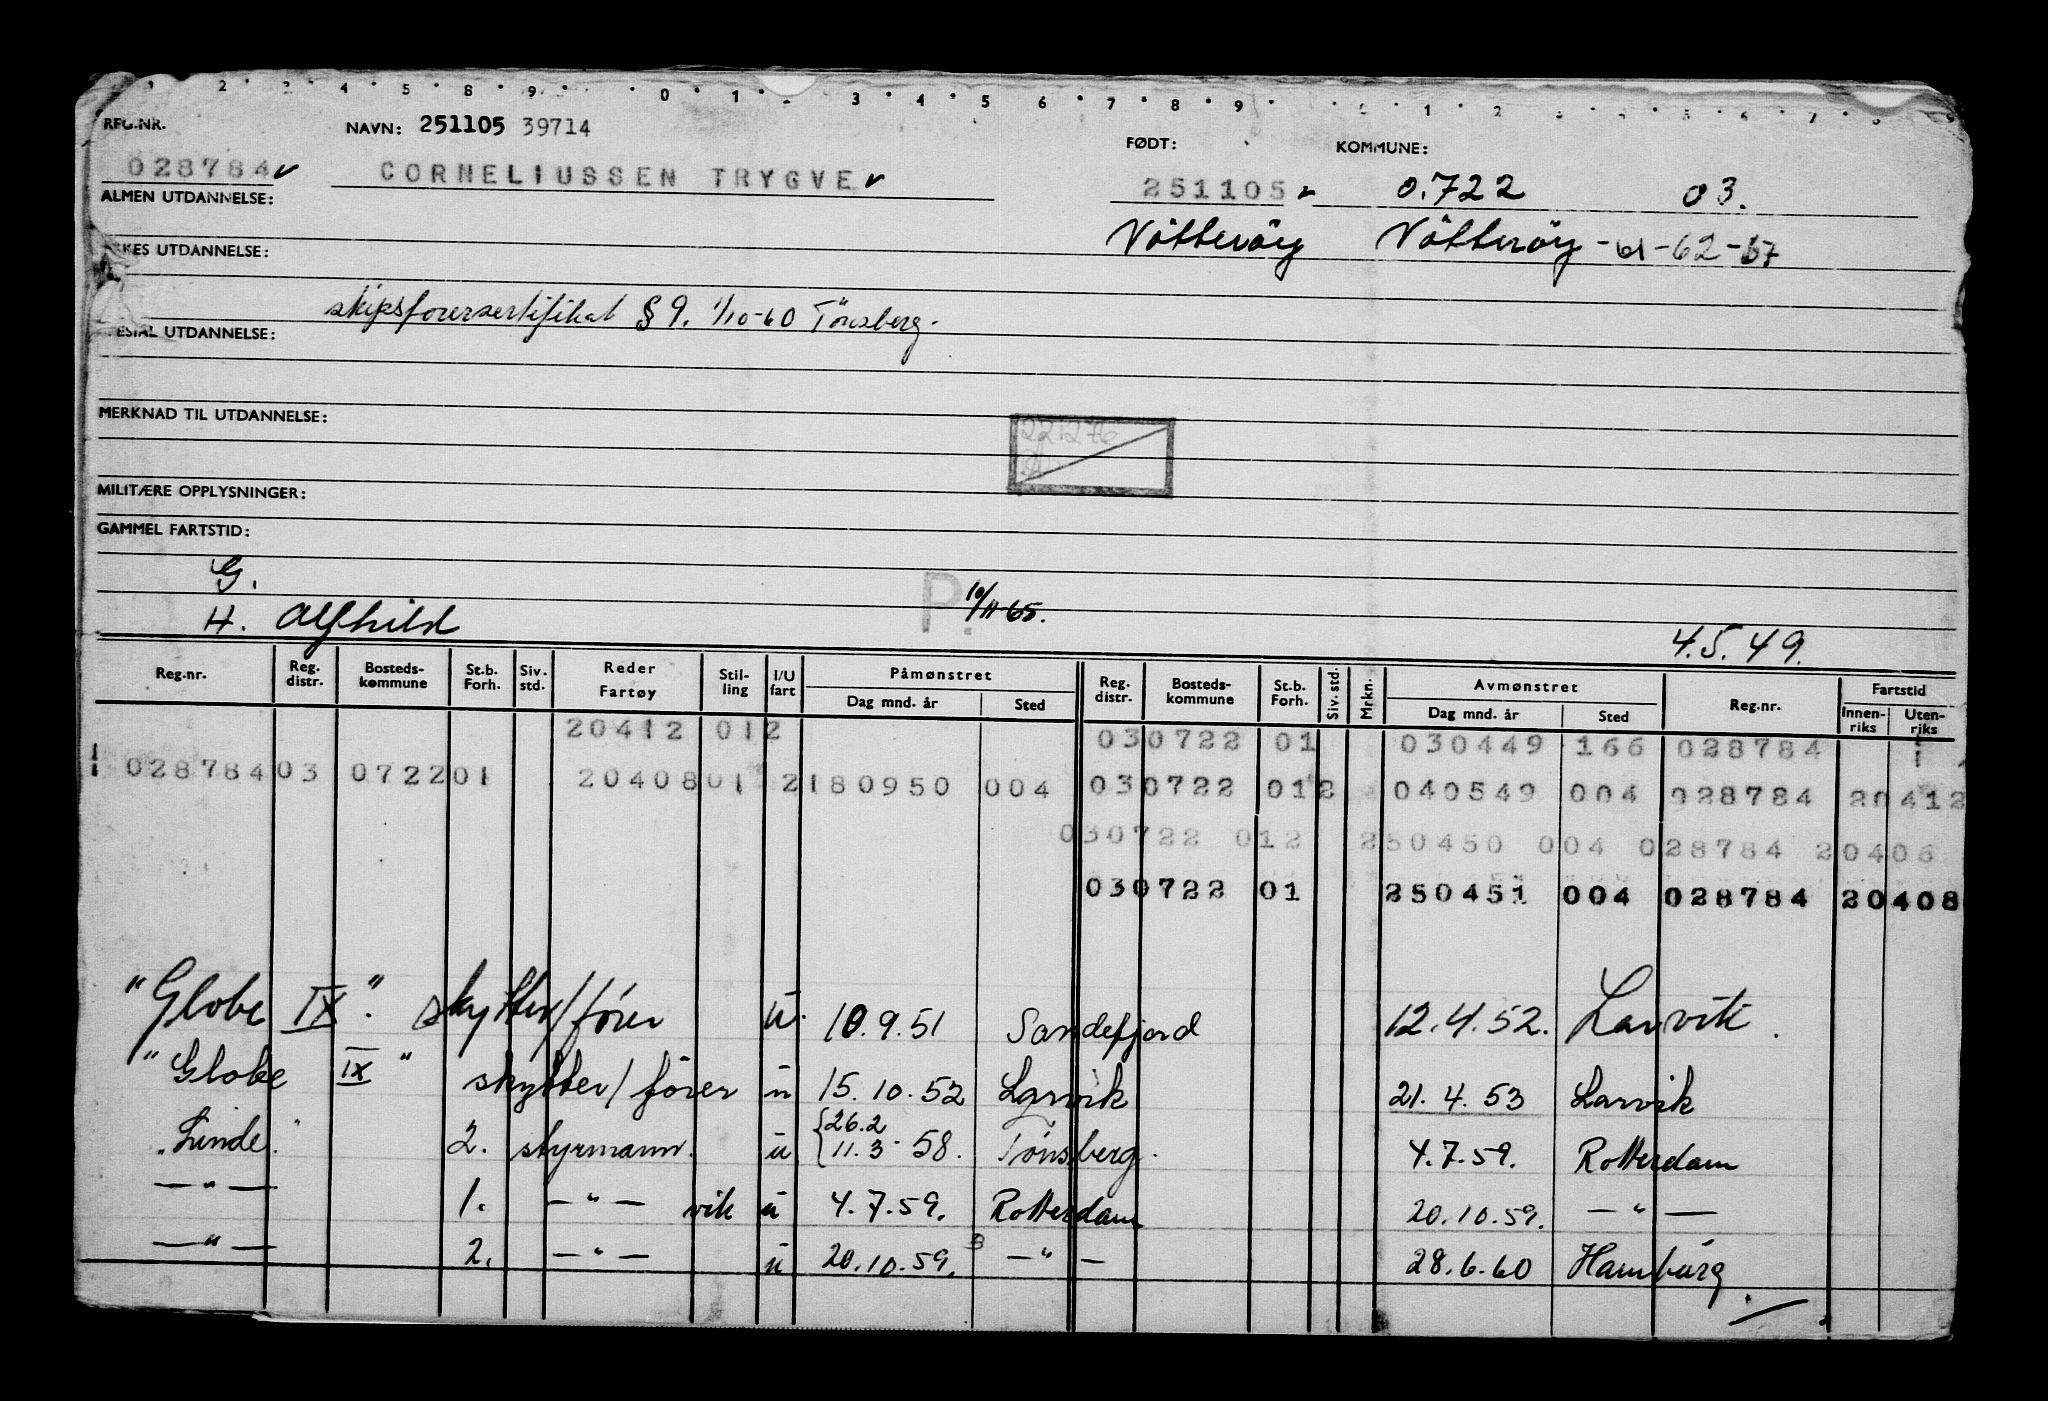 REG.NR. NAVN: 251105 39714 FØDT: KOMMUNE:
028784 CORNELIUSSEN TRYGVE 251105 0.722 03.
ALMEN UTDANNELSE:
Nötteröy Nötteröy -61-62-67
YRKES UTDANNELSE:
skipsförersertifikat § 9. 1/10-60 Tönsberg.
SPESIAL UTDANNELSE:
MERKNAD TIL UTDANNELSE:
221276
MILITÆRE OPPLYSNINGER:
GAMMEL FARTSTID:
G. P. 10/11-65.
H. Alfhild 4.5.49.
Reg.nr. Reg. distr. Bosteds-kommune St.b. Forh. Siv. std. Reder Fartøy Stil-ling I/U fart Påmønstret Dag mnd. år Sted Reg. distr. Bosteds-kommune St.b. Forh. Siv. std. Mrkn. Avmønstret Dag mnd. år Sted Reg.nr. Fartstid Innen-riks Uten-riks
20412 012 030722 01 030449 166 028784
028784 03 0722 01 20408 01 2 180950 004 030722 012 040549 004 028784 20412
030722 012 250450 004 028784 20406
030722 01 250451 004 028784 20408
"Globe IX". skytter/fører u. 10.9.51 Sandefjord 12.4.52. Larvik.
"Globe IX" skytter/fører u 15.10.52 Larvik 21.4.53 Larvik
"Linde" 2. styrmann. u {26.2 11.3-58. Tönsberg. 4.7.59. Rotterdam
—"— 1. —"— vik u 4.7.59. Rotterdam 20.10.59. —"—
—"— 2. —"— u 20.10.59. —"— 28.6.60 Hamburg